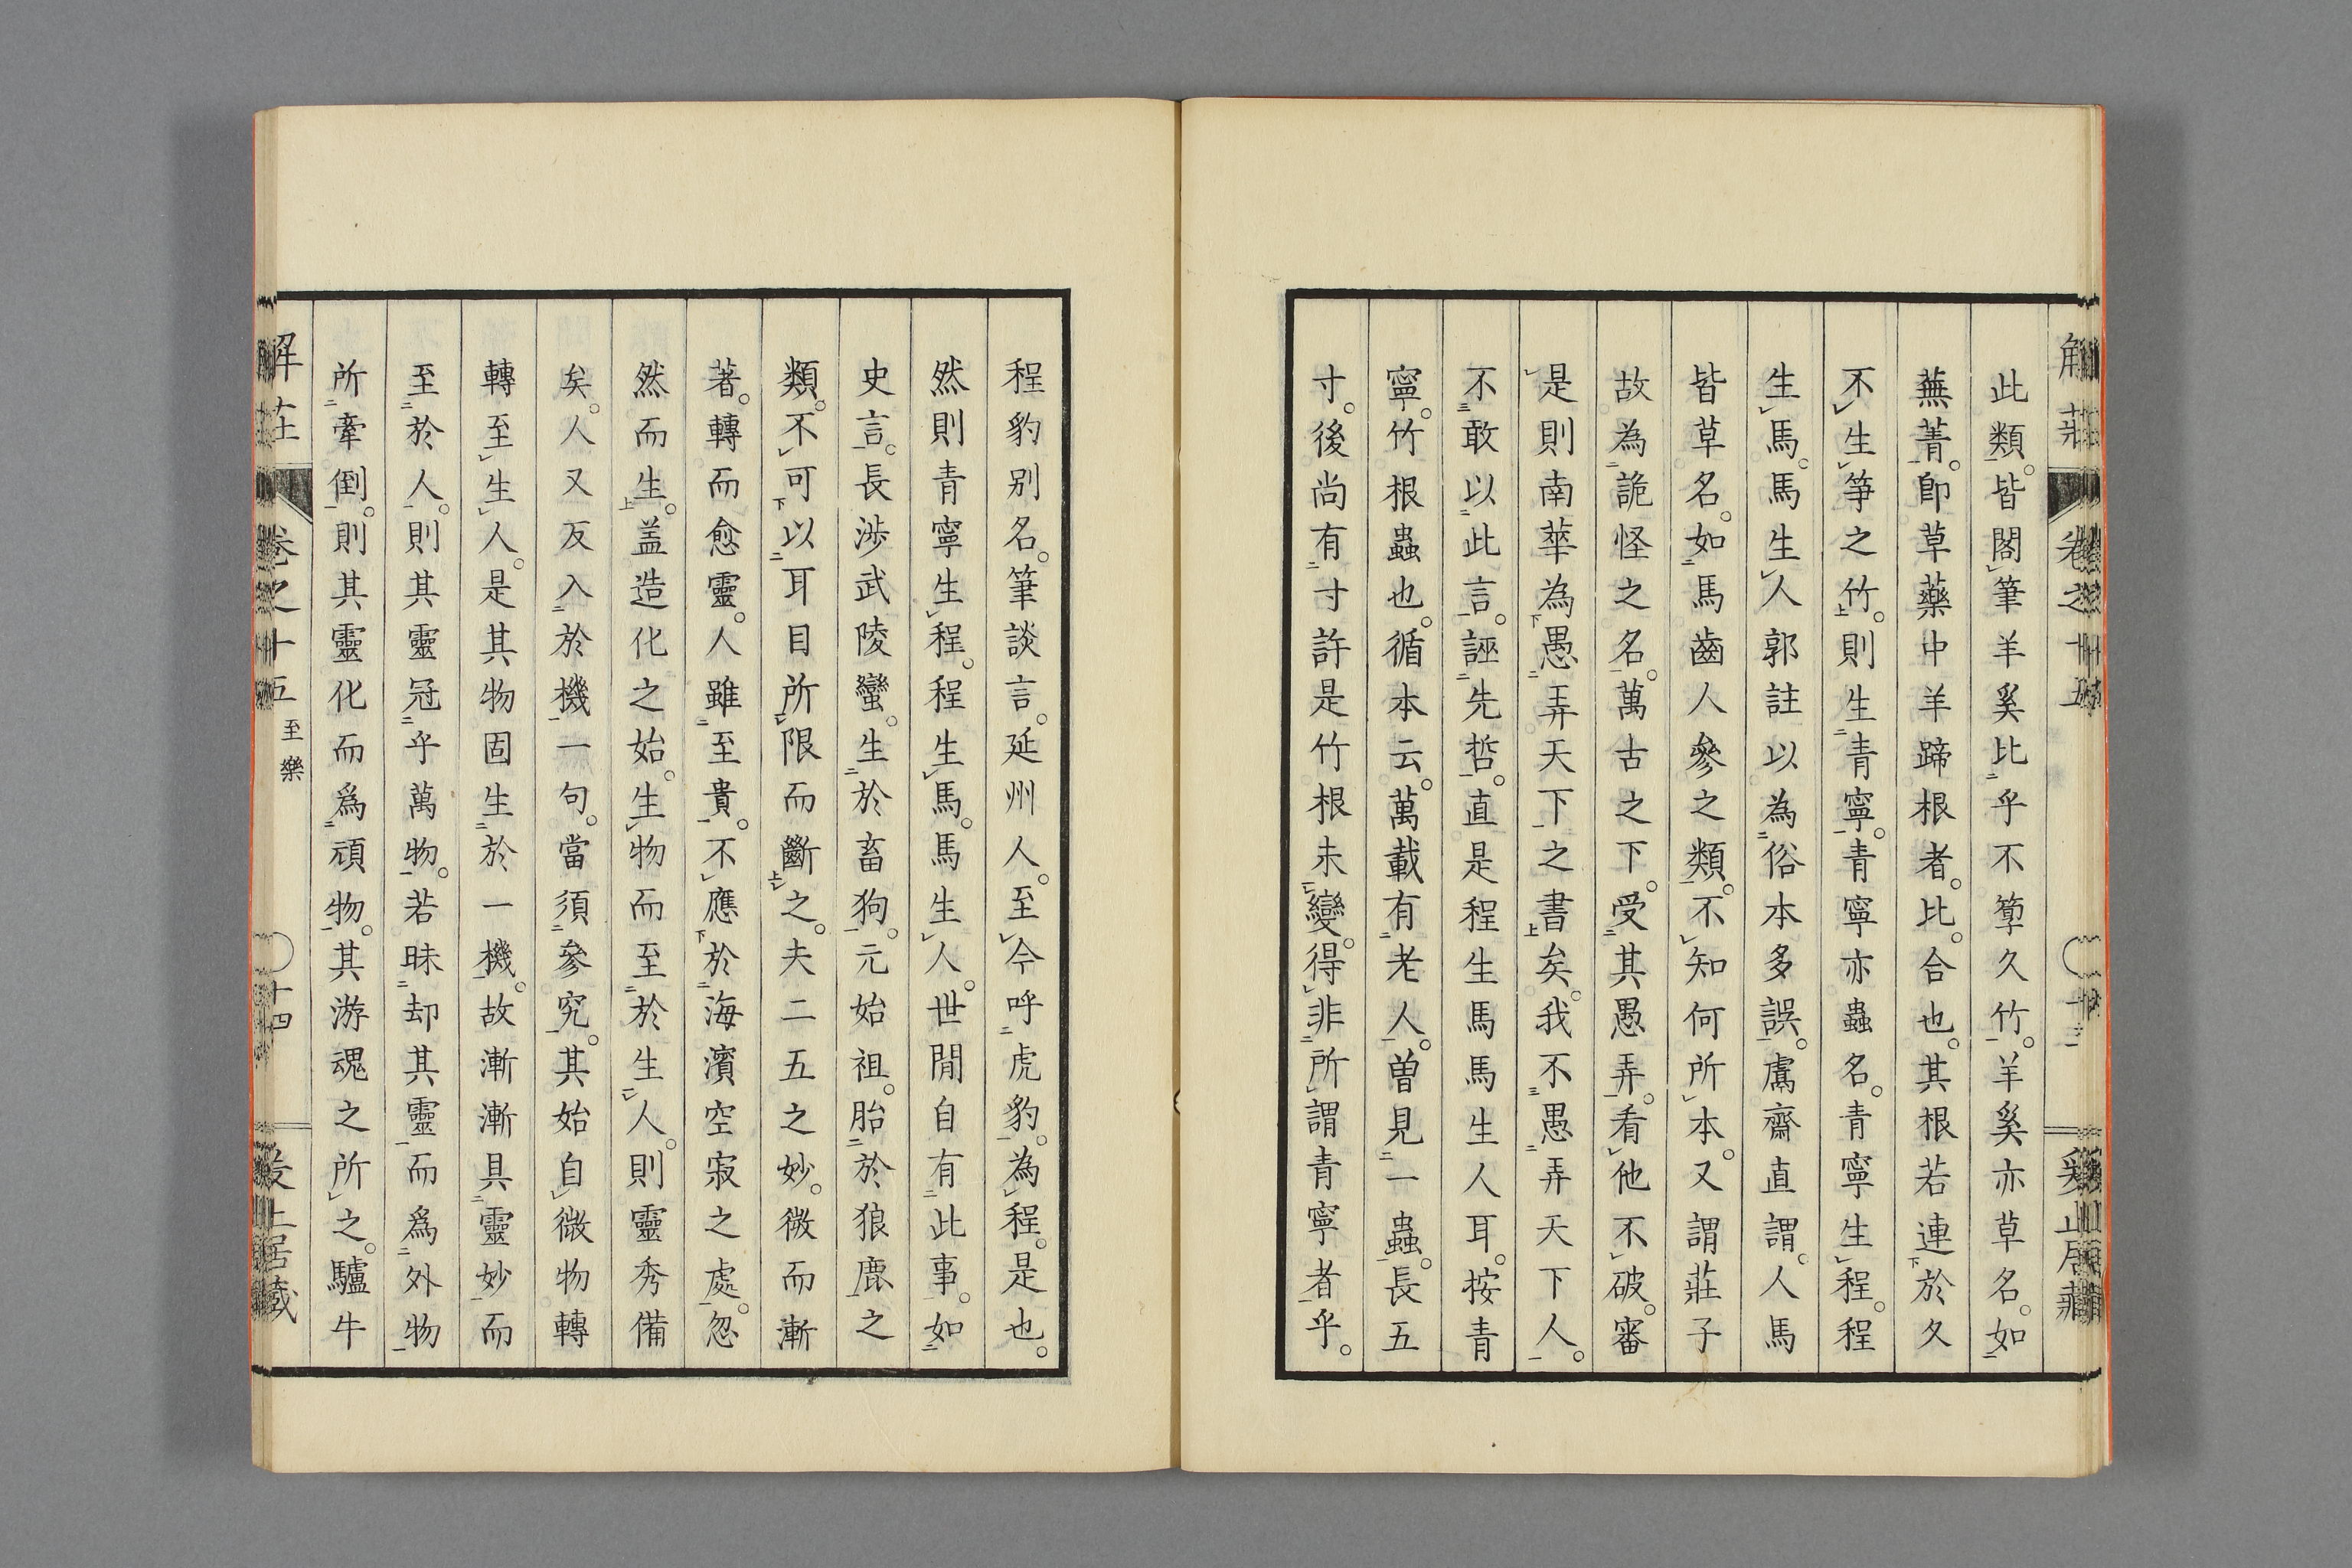 此類。皆閣筆羊奚比乎不箰久竹。羊奚亦草名。如
蕪菁。即草藥中羊蹄根者。比。合也。其根若連於久
不生筝之竹。則生青寧。青寧亦蟲名。青寧生程。程
生馬。馬生人郭註以為俗本多誤。鬳齋直謂。人馬
皆草名。如馬齒人參之類。不知何所本。又謂莊子
故為詭怪之名。萬古之下。受其愚弄。看他不破。審
是則南華為愚弄天下之書矣。我不愚弄天下人。
不敢以此言。誣先哲。直是程生馬馬生人耳。按青
寧。竹根蟲也。循本云。萬載有老人。曽見一蟲。長五
寸。後尚有寸許是竹根未變。得非所謂青寧者乎。
程豹别名。筆談言。延州人。至今呼虎豹。為程。是也。
然則青寧生程。程生馬。馬生人。世間自有此事。如
史言。長渉武陵蠻。生於畜狗。元始祖。胎於狼鹿之
類。不可以耳目所限而斷之。夫二五之妙。微而漸
著。轉而愈靈。人雖至貴。不應於海濱空寂之處。忽
然而生。盖造化之始。生物而至於生人。則靈秀備
矣。人又反入於機一句。當須參究。其始自微物轉
轉至生人。是其物固生於一機。故漸漸具靈妙而
至於人。則其靈冠乎萬物。若昧却其靈而爲外物
所牽倒。則其靈化而爲頑物。其游魂之所之。驢牛
解莊 卷之十五 至樂 十四